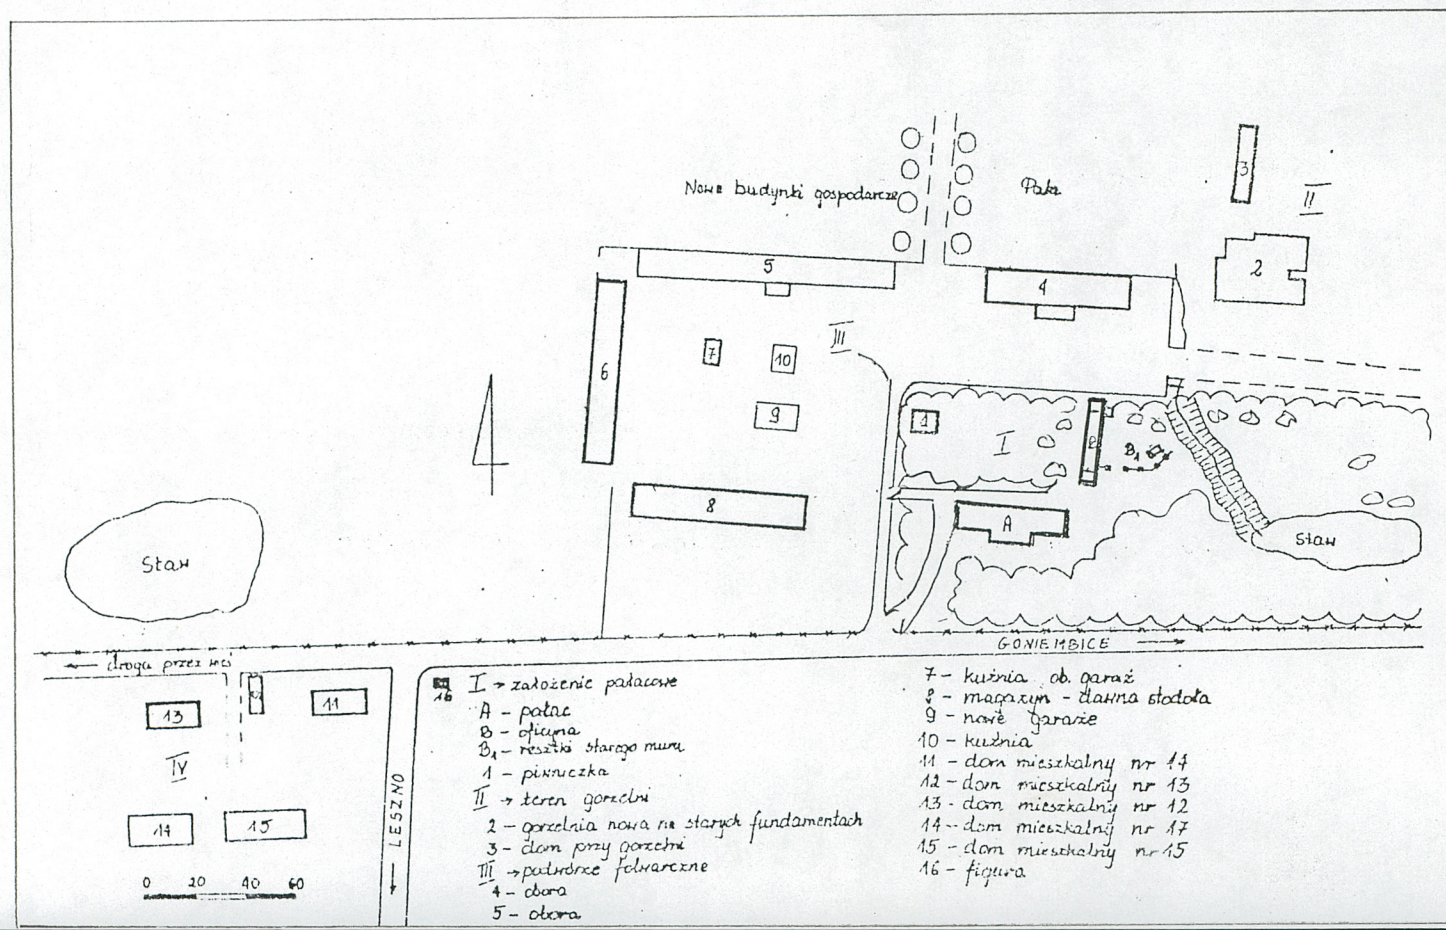 Nowe budynki gospodarcze
Pole
3
II
5
2
4
III
6
7
10
9
1
I
B
B₁
8
A
Staw
Staw
GONIEMBICE →
← droga przez wieś
13
11
16
IV
14
15
← LESZNO
0 20 40 60
I → założenie pałacowe
A - pałac
B - oficyna
B₁ - resztki starego muru
1 - piwniczka
II → teren gorzelni
2 - gorzelnia nowa na starych fundamentach
3 - dom przy gorzelni
III → podwórze folwarczne
4 - obora
5 - obora
7 - kuźnia ob. garaż
8 - magazyn - dawna stodoła
9 - nowe garaże
10 - kuźnia
11 - dom mieszkalny nr 14
12 - dom mieszkalny nr 13
13 - dom mieszkalny nr 12
14 - dom mieszkalny nr 17
15 - dom mieszkalny nr 15
16 - figura